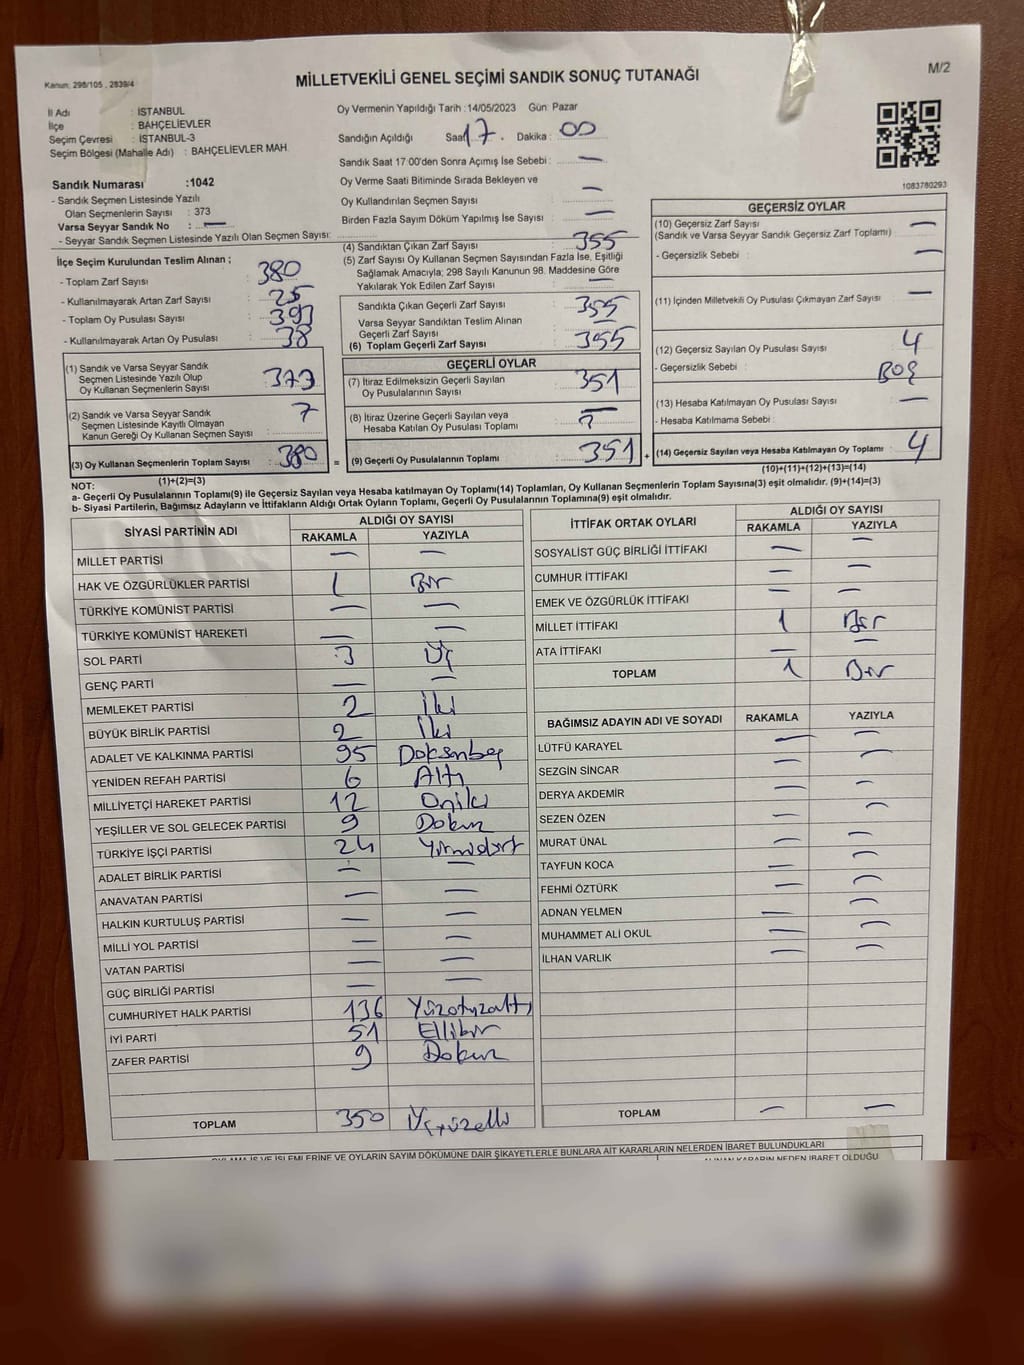 Kanun: 298/105 , 2839/4
MİLLETVEKİLİ GENEL SEÇİMİ SANDIK SONUÇ TUTANAĞI
M/2
İl Adı : İSTANBUL
İlçe : BAHÇELİEVLER
Seçim Çevresi : İSTANBUL-3
Seçim Bölgesi (Mahalle Adı) : BAHÇELİEVLER MAH.
Oy Vermenin Yapıldığı Tarih :14/05/2023 Gün: Pazar
Sandığın Açıldığı Saat 17. Dakika : 00
Sandık Saat 17:00'den Sonra Açımış İse Sebebi : —
Oy Verme Saati Bitiminde Sırada Bekleyen ve
Oy Kullandırılan Seçmen Sayısı : —
Birden Fazla Sayım Döküm Yapılmış İse Sayısı : —
1083780293
Sandık Numarası :1042
- Sandık Seçmen Listesinde Yazılı
Olan Seçmenlerin Sayısı : 373
Varsa Seyyar Sandık No : —
- Seyyar Sandık Seçmen Listesinde Yazılı Olan Seçmen Sayısı:
İlçe Seçim Kurulundan Teslim Alınan ;
- Toplam Zarf Sayısı : 380
- Kullanılmayarak Artan Zarf Sayısı : 25
- Toplam Oy Pusulası Sayısı : 393
- Kullanılmayarak Artan Oy Pusulası : 38
(1) Sandık ve Varsa Seyyar Sandık
Seçmen Listesinde Yazılı Olup
Oy Kullanan Seçmenlerin Sayısı : 373
(2) Sandık ve Varsa Seyyar Sandık
Seçmen Listesinde Kayıtlı Olmayan
Kanun Gereği Oy Kullanan Seçmen Sayısı : 7
(3) Oy Kullanan Seçmenlerin Toplam Sayısı : 380
(1)+(2)=(3)
(4) Sandıktan Çıkan Zarf Sayısı : 355
(5) Zarf Sayısı Oy Kullanan Seçmen Sayısından Fazla İse, Eşitliği
Sağlamak Amacıyla; 298 Sayılı Kanunun 98. Maddesine Göre
Yakılarak Yok Edilen Zarf Sayısı : —
Sandıkta Çıkan Geçerli Zarf Sayısı : 355
Varsa Seyyar Sandıktan Teslim Alınan
Geçerli Zarf Sayısı : —
(6) Toplam Geçerli Zarf Sayısı : 355
GEÇERLİ OYLAR
(7) İtiraz Edilmeksizin Geçerli Sayılan
Oy Pusulalarının Sayısı : 351
(8) İtiraz Üzerine Geçerli Sayılan veya
Hesaba Katılan Oy Pusulası Toplamı :
= (9) Geçerli Oy Pusulalarının Toplamı : 351
GEÇERSİZ OYLAR
(10) Geçersiz Zarf Sayısı : —
(Sandık ve Varsa Seyyar Sandık Geçersiz Zarf Toplamı)
- Geçersizlik Sebebi : —
(11) İçinden Milletvekili Oy Pusulası Çıkmayan Zarf Sayısı : —
(12) Geçersiz Sayılan Oy Pusulası Sayısı : 4
- Geçersizlik Sebebi : BOŞ
(13) Hesaba Katılmayan Oy Pusulası Sayısı : —
- Hesaba Katılmama Sebebi :
+ (14) Geçersiz Sayılan veya Hesaba Katılmayan Oy Toplamı : 4
(10)+(11)+(12)+(13)=(14)
NOT:
a- Geçerli Oy Pusulalarının Toplamı(9) ile Geçersiz Sayılan veya Hesaba katılmayan Oy Toplamı(14) Toplamları, Oy Kullanan Seçmenlerin Toplam Sayısına(3) eşit olmalıdır. (9)+(14)=(3)
b- Siyasi Partilerin, Bağımsız Adayların ve İttifakların Aldığı Ortak Oyların Toplamı, Geçerli Oy Pusulalarının Toplamına(9) eşit olmalıdır.
SİYASİ PARTİNİN ADI ALDIĞI OY SAYISI
RAKAMLA YAZIYLA
MİLLET PARTİSİ — —
HAK VE ÖZGÜRLÜKLER PARTİSİ 1 Bir
TÜRKİYE KOMÜNİST PARTİSİ — —
TÜRKİYE KOMÜNİST HAREKETİ — —
SOL PARTİ 3 Üç
GENÇ PARTİ — —
MEMLEKET PARTİSİ 2 İki
BÜYÜK BİRLİK PARTİSİ 2 İki
ADALET VE KALKINMA PARTİSİ 95 Doksanbeş
YENİDEN REFAH PARTİSİ 6 Altı
MİLLİYETÇİ HAREKET PARTİSİ 12 Oniki
YEŞİLLER VE SOL GELECEK PARTİSİ 9 Dokuz
TÜRKİYE İŞÇİ PARTİSİ 24 Yirmidört
ADALET BİRLİK PARTİSİ — —
ANAVATAN PARTİSİ — —
HALKIN KURTULUŞ PARTİSİ — —
MİLLİ YOL PARTİSİ — —
VATAN PARTİSİ — —
GÜÇ BİRLİĞİ PARTİSİ — —
CUMHURİYET HALK PARTİSİ 136 Yüzotuzaltı
İYİ PARTİ 51 Ellibir
ZAFER PARTİSİ 9 Dokuz
TOPLAM 350 Üçyüzelli
İTTİFAK ORTAK OYLARI ALDIĞI OY SAYISI
RAKAMLA YAZIYLA
SOSYALİST GÜÇ BİRLİĞİ İTTİFAKI — —
CUMHUR İTTİFAKI — —
EMEK VE ÖZGÜRLÜK İTTİFAKI — —
MİLLET İTTİFAKI 1 Bir
ATA İTTİFAKI — —
TOPLAM 1 Bir
BAĞIMSIZ ADAYIN ADI VE SOYADI RAKAMLA YAZIYLA
LÜTFÜ KARAYEL — —
SEZGİN SİNCAR — —
DERYA AKDEMİR — —
SEZEN ÖZEN — —
MURAT ÜNAL — —
TAYFUN KOCA — —
FEHMİ ÖZTÜRK — —
ADNAN YELMEN — —
MUHAMMET ALİ OKUL — —
İLHAN VARLIK — —
TOPLAM — —
OYLAMA İŞ VE İŞLEMLERİNE VE OYLARIN SAYIM DÖKÜMÜNE DAİR ŞİKAYETLERLE BUNLARA AİT KARARLARIN NELERDEN İBARET BULUNDUKLARI
ALINAN KARARIN NEDEN İBARET OLDUĞU